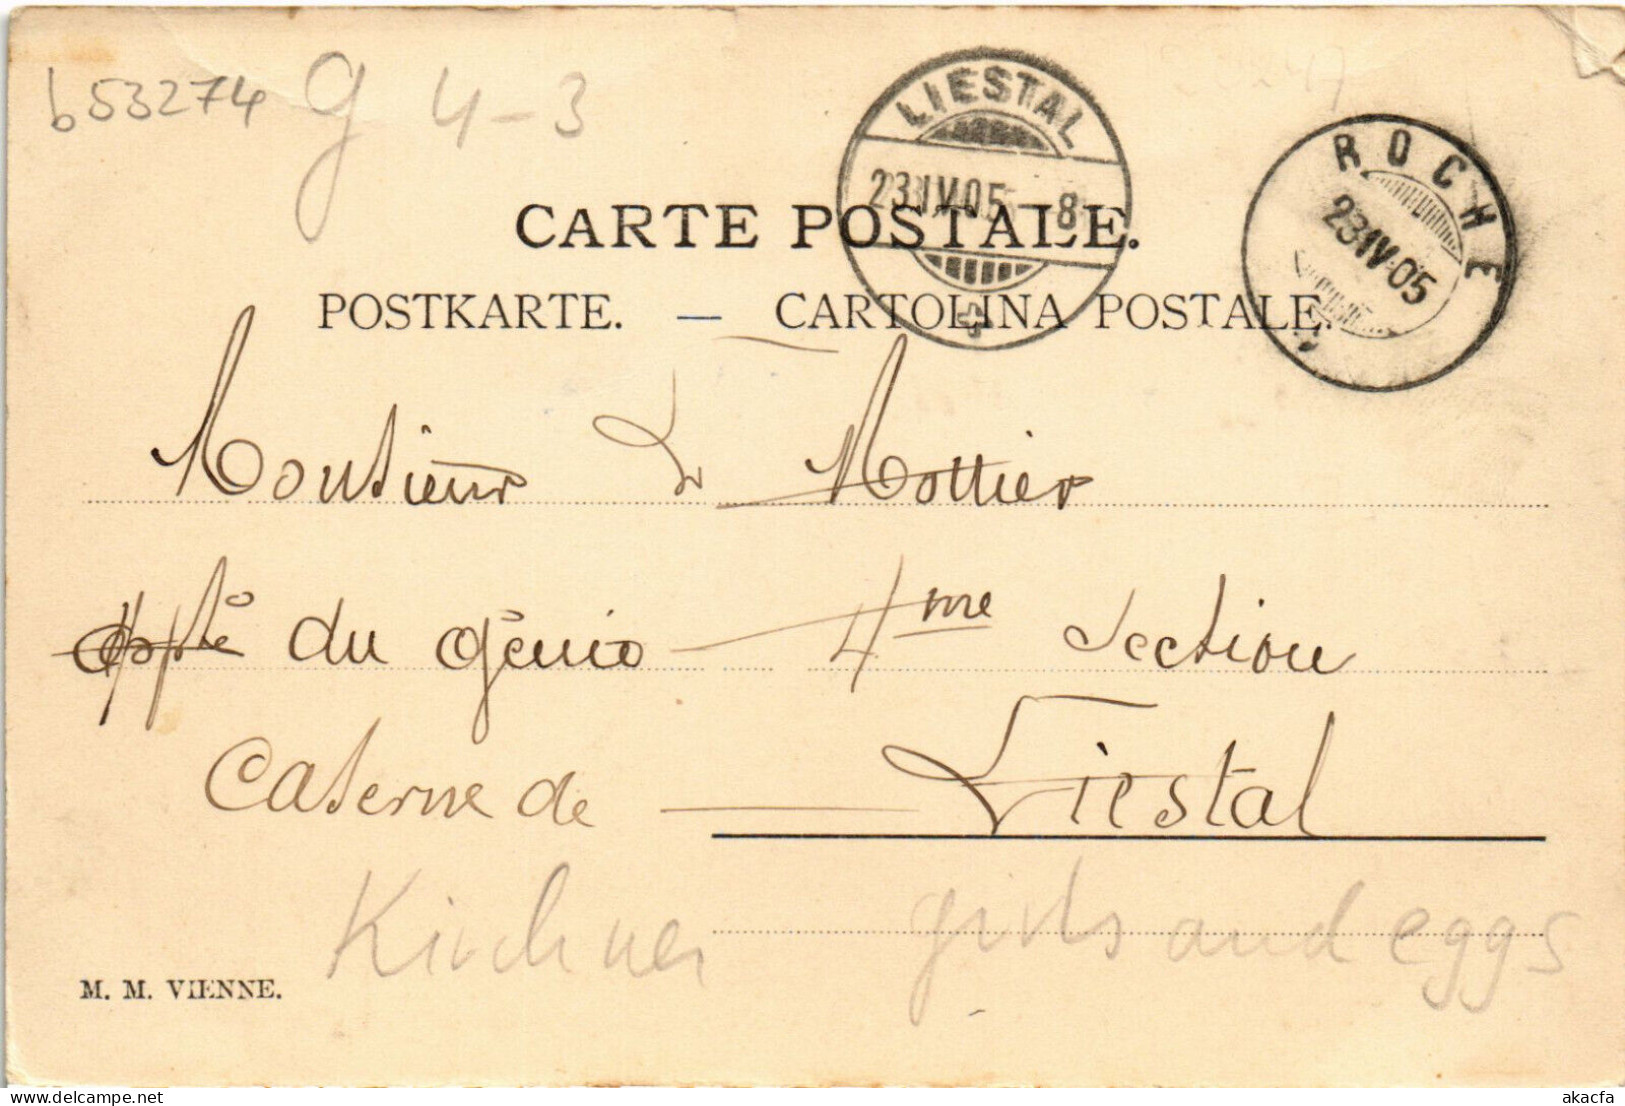 b53274 g 4-3
LIESTAL
23.IV.05.-8
ROCHE
23.IV.05
CARTE POSTALE.
POSTKARTE. — CARTOLINA POSTALE.
Monsieur L Mottier
du Génie — 4me Section
Caserne de — Liestal
Kirchner girls and eggs
M. M. VIENNE.
akacfa